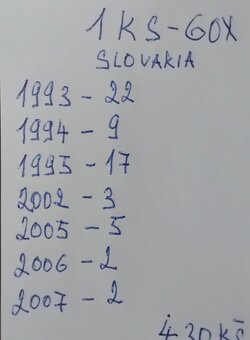 1 KS-60X
SLOVAKIA
1993 - 22
1994 - 9
1995 - 17
2002 - 3
2005 - 5
2006 - 2
2007 - 2
430 Kč